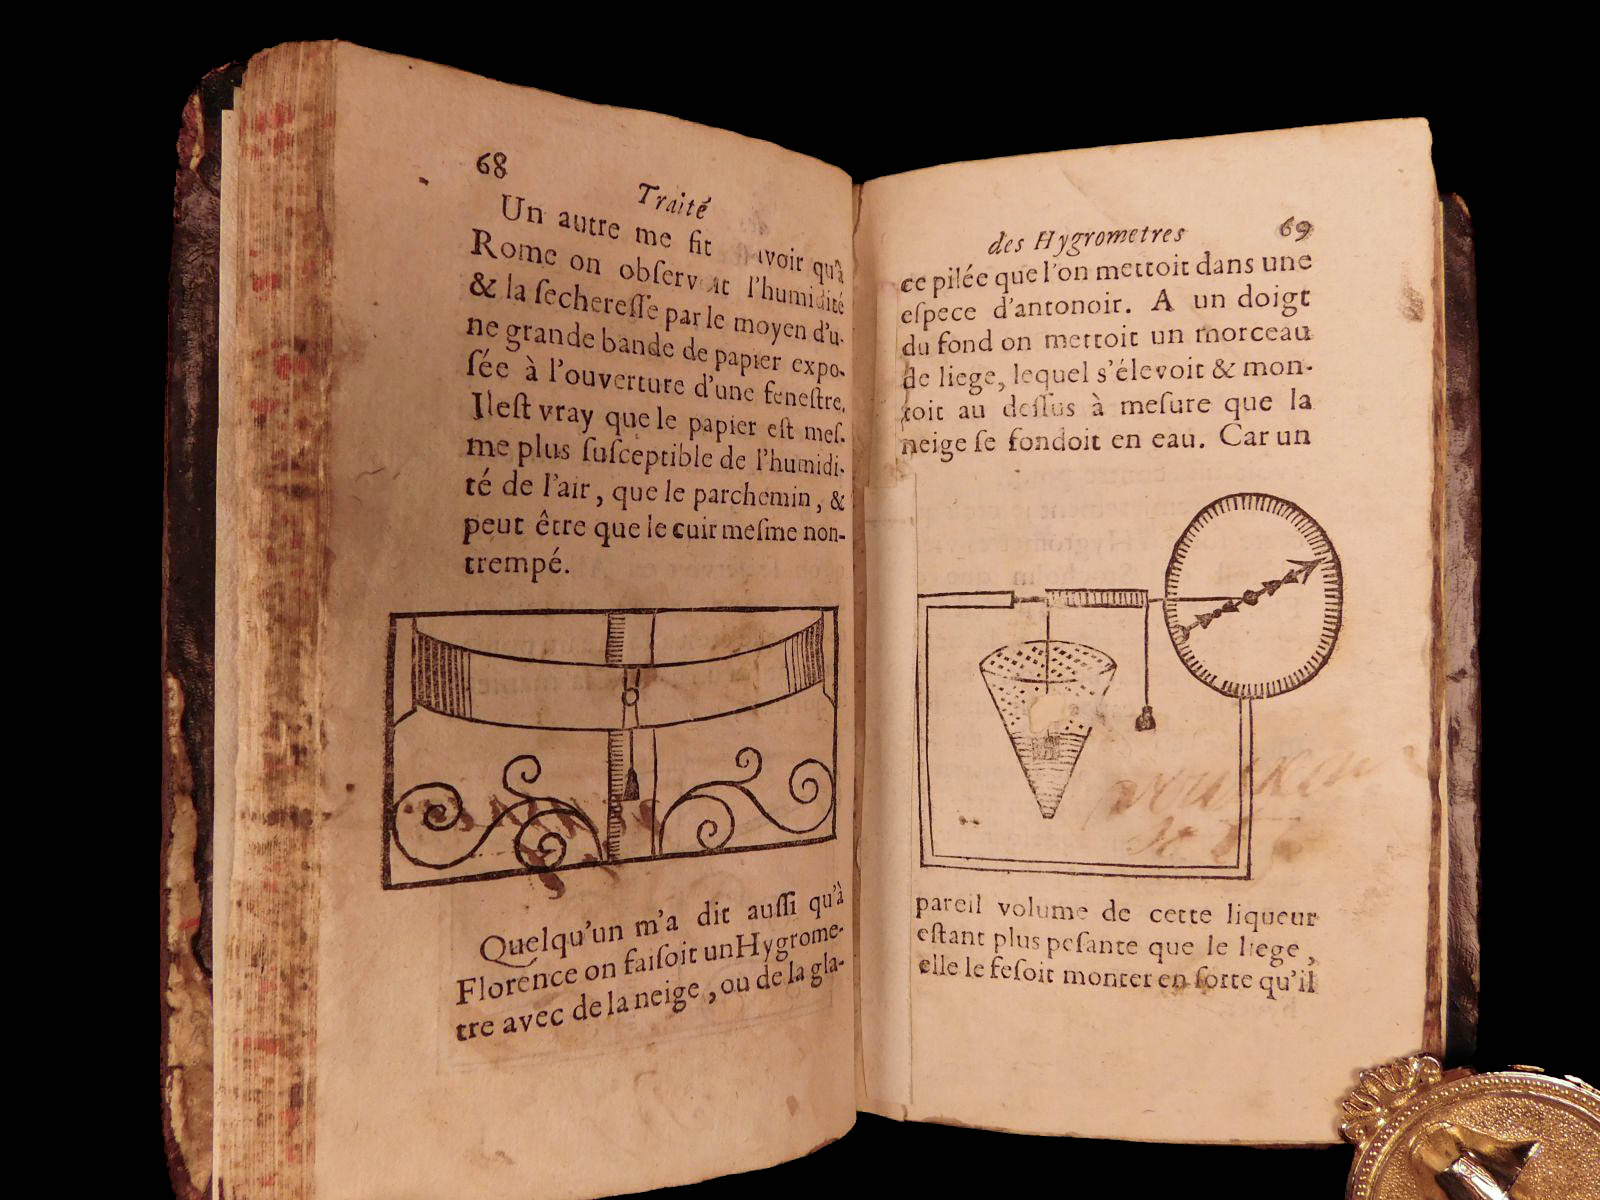 68
Traité
Un autre me fit qu'à
Rome on l'humidité
& la ſechereſſe par le moyen d'u-
ne grande bande de papier expo-
ſée à l'ouverture d'une feneſtre.
Il eſt vray que le papier eſt meſ-
me plus ſuſceptible de l'humidi-
té de l'air, que le parchemin, &
peut être que le cuir meſme non-
trempé.
Quelqu'un m'a dit auſſi qu'à
Florence on faiſoit un Hygrome-
tre avec de la neige, ou de la gla-
des Hygrometres 69
ce pilée que l'on mettoit dans une
eſpece d'antonoir. A un doigt
du fond on mettoit un morceau
de liege, lequel s'élevoit & mon-
toit au deſſus à meſure que la
neige ſe fondoit en eau. Car un
pareil volume de cette liqueur
eſtant plus peſante que le liege,
elle le feſoit monter en ſorte qu'il